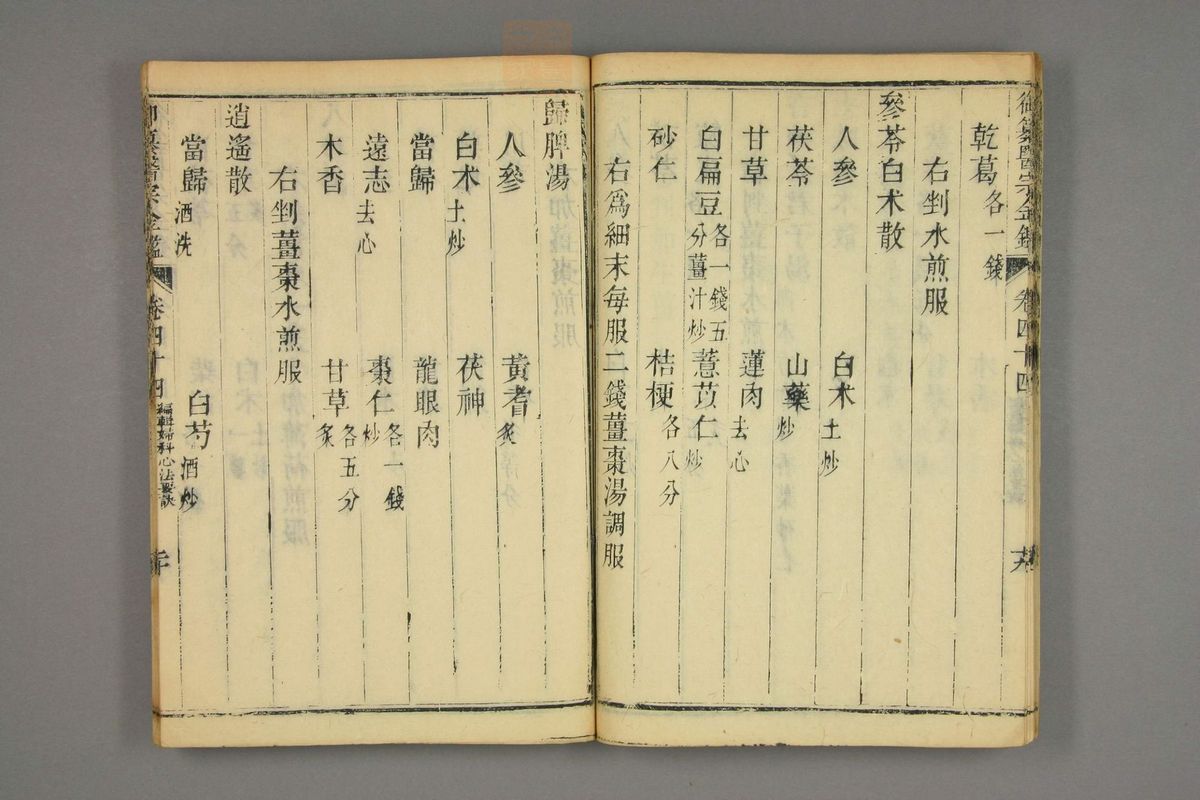 御纂醫宗金鑑 卷四十四
乾葛各一錢
右剉水煎服
參苓白朮散
人參 白朮土炒
茯苓 山藥炒
甘草 蓮肉去心
白扁豆各一錢五分薑汁炒 薏苡仁炒
砂仁 桔梗各八分
右爲細末每服二錢薑棗湯調服
歸脾湯
人參 黃耆炙
白朮土炒 茯神
當歸 龍眼肉
遠志去心 棗仁炒各一錢
木香 甘草炙各五分
右剉薑棗水煎服
逍遙散
當歸酒洗 白芍酒炒
御纂醫宗金鑑 卷四十四 編輯婦科心法要訣